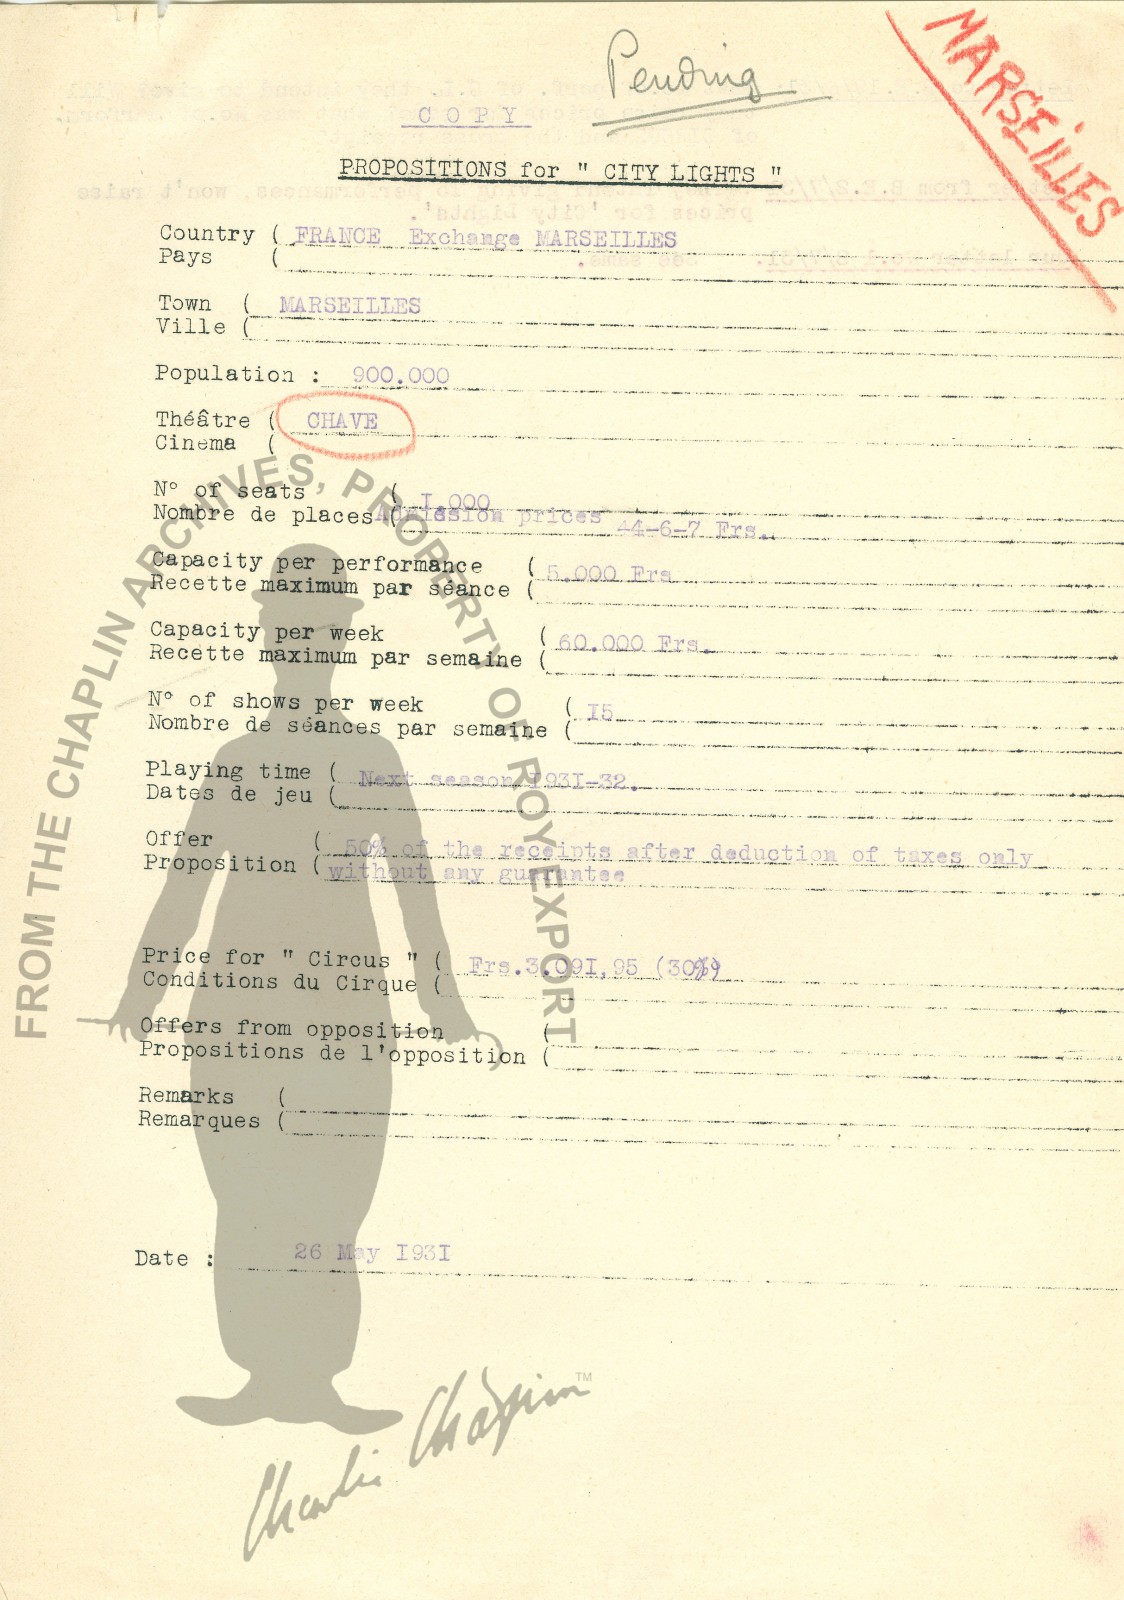 Pending
MARSEILLES
COPY
PROPOSITIONS for " CITY LIGHTS "
Country ( FRANCE Exchange MARSEILLES
Pays (
Town ( MARSEILLES
Ville (
Population : 900.000
Théâtre ( CHAVE
Cinema (
N° of seats ( I.000
Nombre de places ( Admission prices 4-6-7 Frs.
Capacity per performance ( 5.000 Frs
Recette maximum par séance (
Capacity per week ( 60.000 Frs.
Recette maximum par semaine (
N° of shows per week ( I5
Nombre de séances par semaine (
Playing time ( Next season I93I-32.
Dates de jeu (
Offer ( 50% of the receipts after deduction of taxes only
Proposition ( without any guarantee
Price for " Circus " ( Frs.3.09I,95 (30%)
Conditions du Cirque (
Offers from opposition (
Propositions de l'opposition (
Remarks (
Remarques (
Date : 26 May I93I
FROM THE CHAPLIN ARCHIVES, PROPERTY OF ROY EXPORT
Charlie Chaplin TM